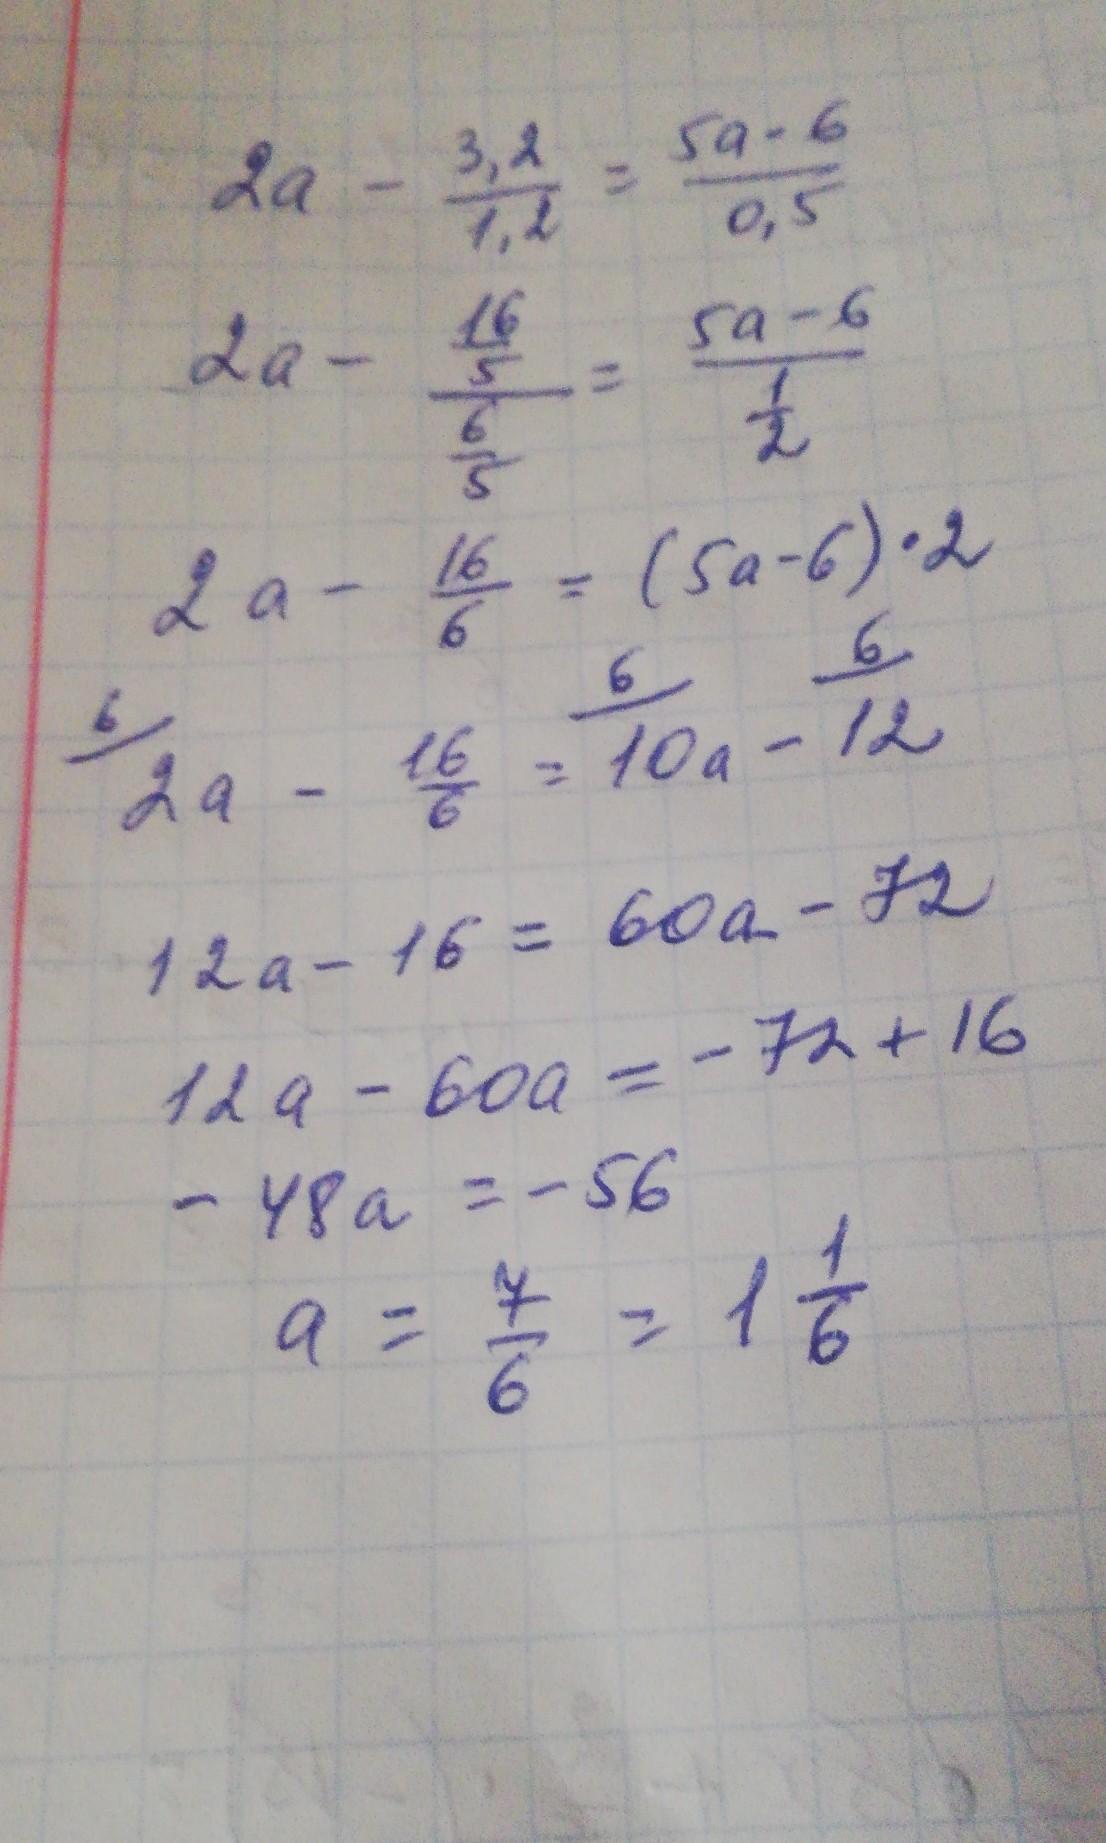 2a - 3,2/1,2 = (5a-6)/0,5
2a - (16/5)/(6/5) = (5a-6)/(1/2)
2a - 16/6 = (5a-6)·2
6/ 2a - 16/6 = 6/ 10a - 6/ 12
12a - 16 = 60a - 72
12a - 60a = -72 + 16
- 48a = - 56
a = 7/6 = 1 1/6